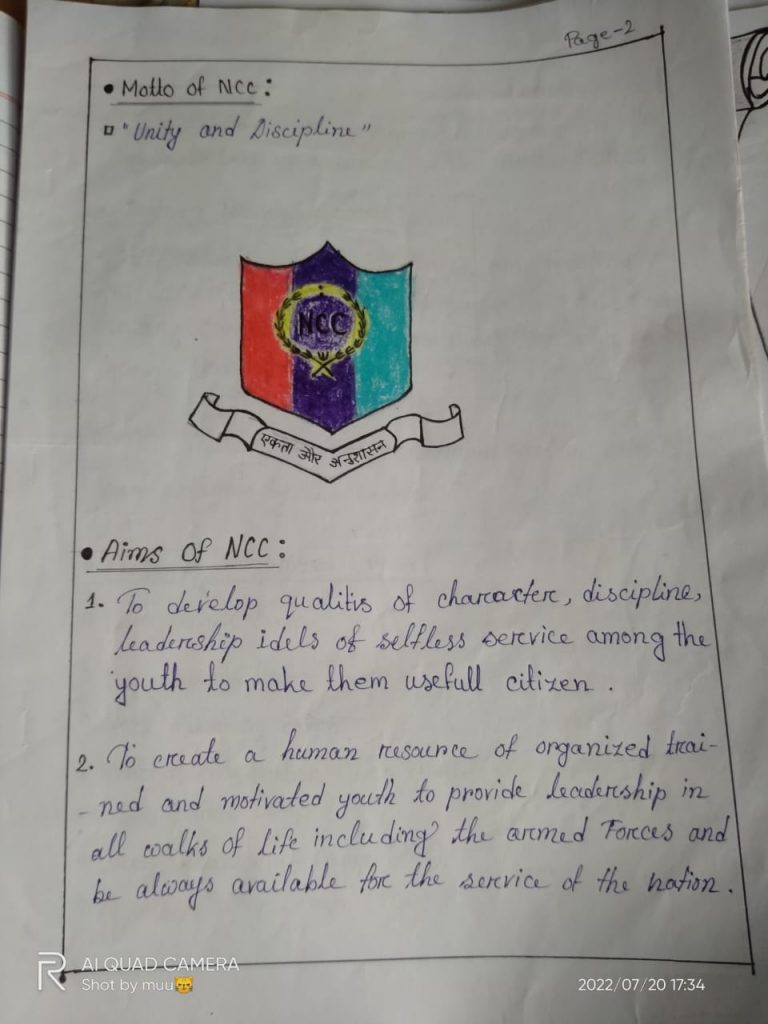 Page-2
• Motto of NCC:
▫ "Unity and Discipline"
NCC
एकता और अनुशासन
• Aims Of NCC:
1. To develop qualitis of character, discipline,
leadership idels of selfless service among the
youth to make them usefull citizen.
2. To create a human resource of organized trai-
-ned and motivated youth to provide leadership in
all walks of life including the armed Forces and
be always available for the service of the nation.
AI QUAD CAMERA
Shot by muu😸
2022/07/20 17:34